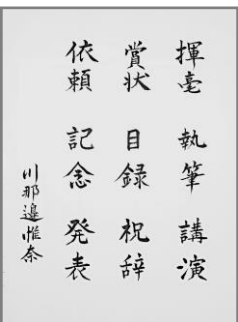 揮毫 執筆 講演
賞状 目録 祝辞
依頼 記念 発表
川那邊惟奈